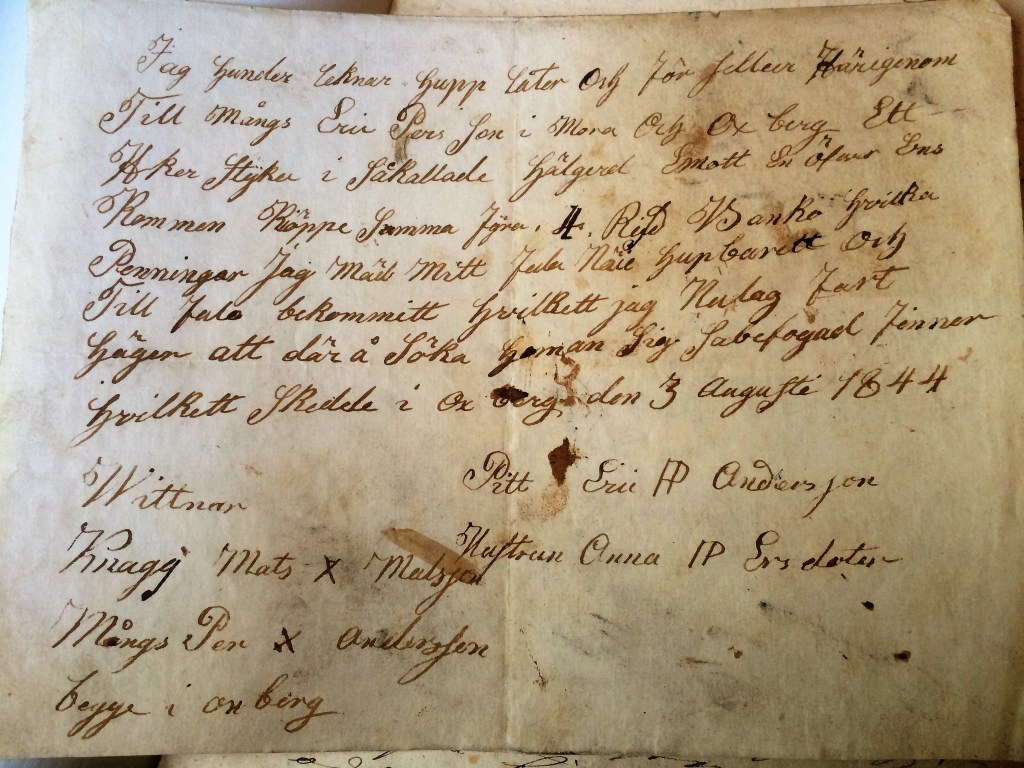 Jag hunder teknar hupp låter Och för sellier Härigenom
Till Mångs Eric Pers Son i Mora Och Ox berg Ett
Åker Styke i Såkallade hälgerd Emott En öfver Ens
Kommen Köppe Summa fyra, 4, Rijd Banko hvilka
Penningar Jag Mäd Mitt fula Näie hupbaritt Och
Till fulo bekommitt hvilkett jag Nulag fart
häger att därå Söka haman Sig Sabefogad finner
hvilkett Skedde i Ox berg den 3 Augusti 1844
Wittnar Pitt Eric AP Anders son
Hustrun Anna AP Ersdoter
Knagg Mats X Matsson
Mångs Per X Andersson
begge i oxberg